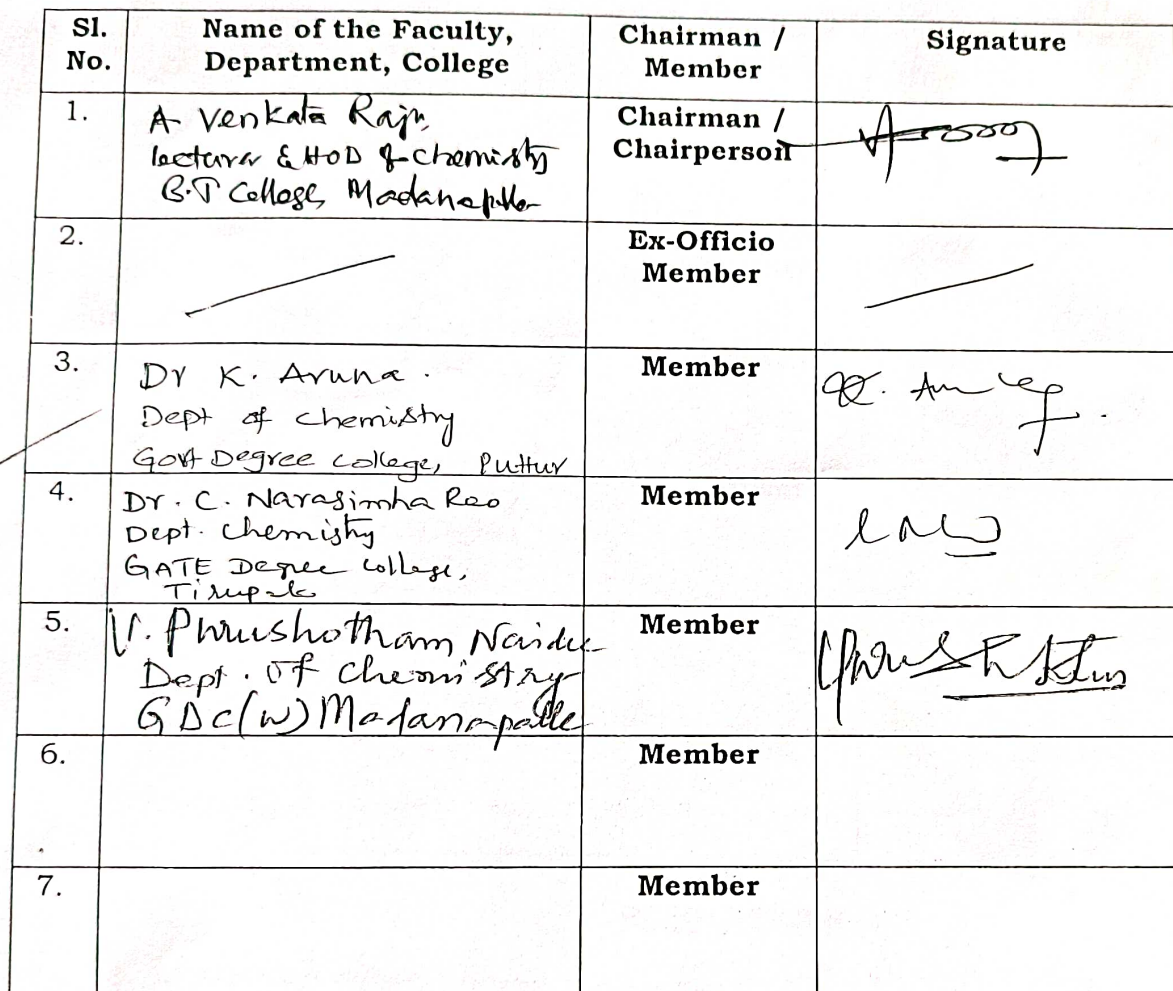 Sl. No.
Name of the Faculty, Department, College
Chairman / Member
Signature
1.
A Venkata Raju,
lecturer & HOD of chemistry
B.T College, Madanapalle
Chairman / Chairperson
2.
Ex-Officio Member
3.
Dr K. Aruna.
Dept of chemistry
Govt Degree college, Puttur
Member
K. Aru
4.
Dr. C. Narasimha Rao
Dept. Chemistry
GATE Degree college,
Tirupati
Member
5.
V. Phrushotham Naidu
Dept. of chemistry
GDC(W) Madanapalle
Member
6.
Member
7.
Member